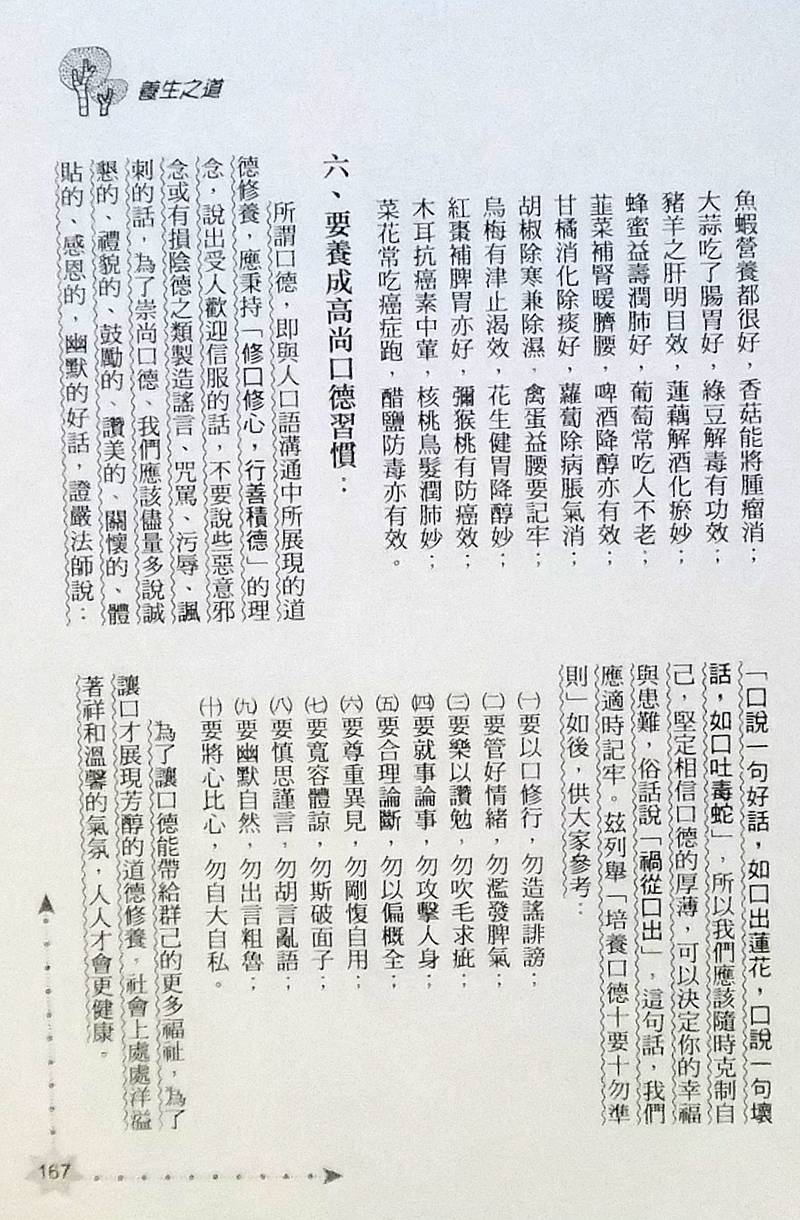 養生之道
魚蝦營養都很好，香菇能將腫瘤消；
大蒜吃了腸胃好，綠豆解毒有功效；
豬羊之肝明目效，蓮藕解酒化瘀妙；
蜂蜜益壽潤肺好，葡萄常吃人不老；
韮菜補腎暖臍腰，啤酒降醇亦有效；
甘橘消化除痰好，蘿蔔除病脹氣消；
胡椒除寒兼除濕，禽蛋益腰要記牢；
烏梅有津止渴效，花生健胃降醇妙；
紅棗補脾胃亦好，彌猴桃有防癌效；
木耳抗癌素中葷，核桃烏髮潤肺妙；
菜花常吃癌症跑，醋鹽防毒亦有效。
六、要養成高尚口德習慣：
所謂口德，即與人口語溝通中所展現的道
德修養，應秉持「修口修心，行善積德」的理
念，說出受人歡迎信服的話，不要說些惡意邪
念或有損陰德之類製造謠言、咒罵、污辱、諷
刺的話，為了崇尚口德、我們應該儘量多說誠
懇的、禮貌的、鼓勵的、讚美的、關懷的、體
貼的、感恩的，幽默的好話，證嚴法師說：
「口說一句好話，如口出蓮花，口說一句壞
話，如口吐毒蛇」，所以我們應該隨時克制自
己，堅定相信口德的厚薄，可以決定你的幸福
與患難，俗話說「禍從口出」，這句話，我們
應適時記牢。茲列舉「培養口德十要十勿準
則」如後，供大家參考：
㈠要以口修行，勿造謠誹謗；
㈡要管好情緒，勿濫發脾氣；
㈢要樂以讚勉，勿吹毛求疵；
㈣要就事論事，勿攻擊人身；
㈤要合理論斷，勿以偏概全；
㈥要尊重異見，勿剛愎自用；
㈦要寬容體諒，勿斯破面子；
㈧要慎思謹言，勿胡言亂語；
㈨要幽默自然，勿出言粗魯；
㈩要將心比心，勿自大自私。
為了讓口德能帶給群己的更多福祉，為了
讓口才展現芳醇的道德修養，社會上處處洋溢
著祥和溫馨的氣氛，人人才會更健康。
167